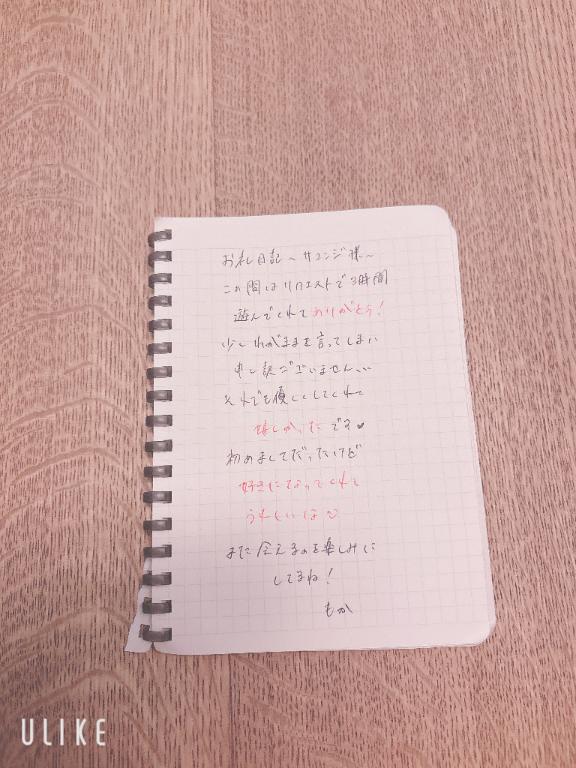 お礼日記〜サコンジ様〜
この間はリクエストで3時間
遊んでくれてありがとう!
少しわがままを言ってしまい
申し訳ございません、、、
それでも優しくしてくれて
嬉しかったです♥
初めましてだったけど
好きになってくれて
うれしいな♡
また会えるのを楽しみに
してるね!
もか
ULIKE